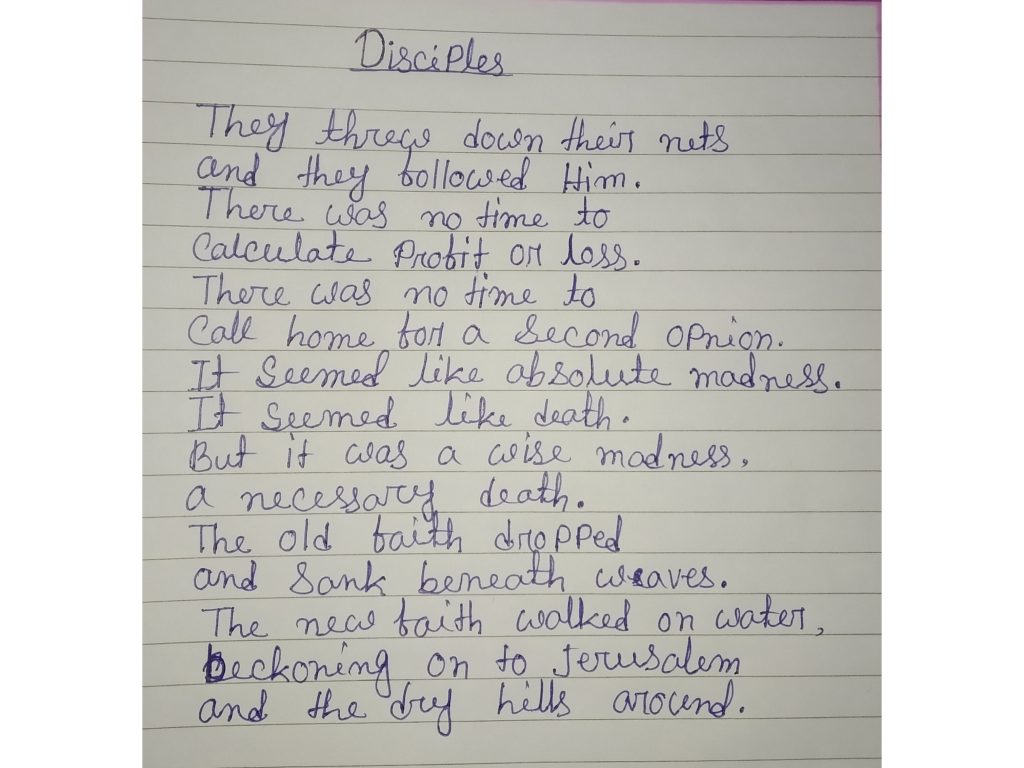 Disciples
They threw down their nets
and they followed Him.
There was no time to
Calculate Profit or loss.
There was no time to
Call home for a Second opnion.
It Seemed like absolute madness.
It Seemed like death.
But it was a wise madness,
a necessary death.
The old faith dropped
and Sank beneath waves.
The new faith walked on water,
beckoning on to Jerusalem
and the dry hills around.